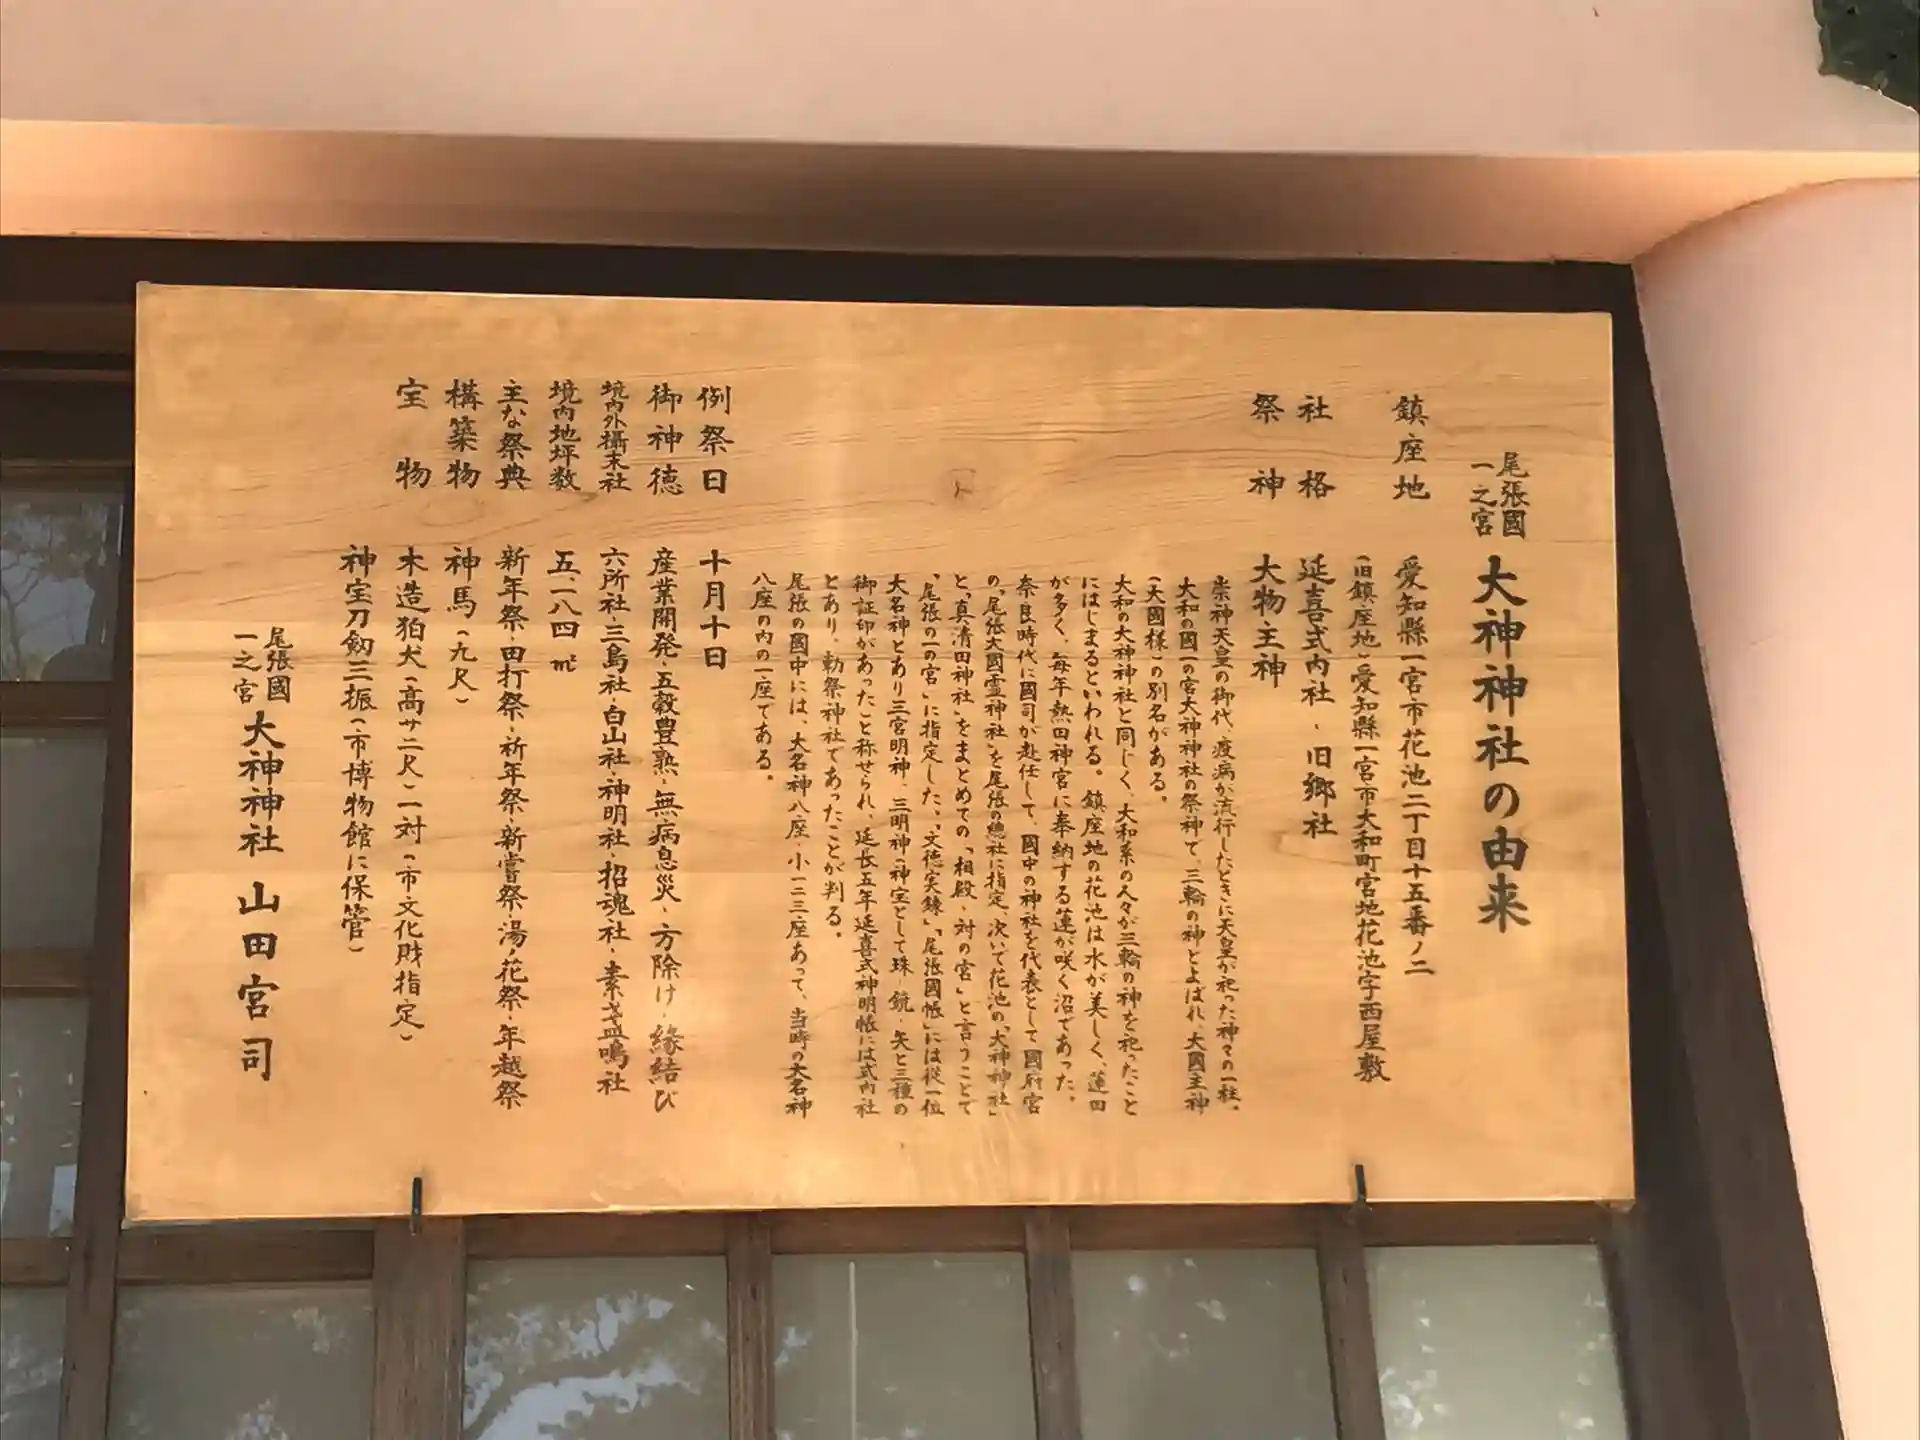 尾張國
一之宮
大神神社の由来
鎮座地 愛知縣一宮市花池二丁目十五番ノ二
(旧鎮座地)愛知縣一宮市大和町宮地花池字西屋敷
社格 延喜式内社、旧郷社
祭神 大物主神
崇神天皇の御代、疫病が流行したときに天皇が祀った神々の一柱。
大和の國一の宮大神神社の祭神で、三輪の神とよばれ、大國主神
(大國様)の別名がある。
大和の大神神社と同じく、大和系の人々が三輪の神を祀ったこと
にはじまるといわれる。鎮座地の花池は水が美しく、蓮田
が多く、毎年熱田神宮に奉納する蓮が咲く沼であった。
奈良時代に國司が赴任して、國中の神社を代表として國府宮
の「尾張大國霊神社」を尾張の總社に指定、次いで花池の「大神神社」
と「真清田神社」をまとめての「相殿・対の宮」と言うことで
「尾張の一の宮」に指定した。「文徳実録」「尾張國帳」には従一位
大名神とあり三宮明神、三明神(神宝として珠・鏡・矢と三種の
御証印があったこと称せられ、延長五年延喜式神明帳には式内社
とあり、勅祭神社であったことが判る。
尾張の國中には、大名神八座・小一二三座あって、当時の大名神
八座の内の一座である。
例祭日 十月十日
御神徳 産業開発・五穀豊熟・無病息災・方除け・縁結び
境内外攝末社 六所社・三島社・白山社・神明社・招魂社・素盞鳴社
境内地坪数 五、一八四㎡
主な祭典 新年祭・田打祭・祈年祭・新嘗祭・湯ノ花祭・年越祭
構築物 神馬(九尺)
宝物 木造狛犬(高サ二尺)一対(市・文化財指定)
神宝刀劔三振(市博物館に保管)
尾張國
一之宮
大神神社 山田宮司